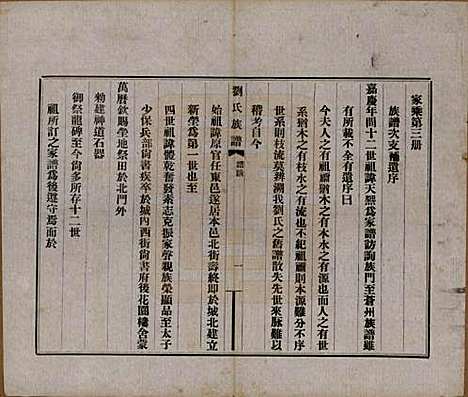 家乘第三册
族譜次支補遺序
嘉慶年間十二世祖諱天熙爲家譜訪詢族門至蒼州族譜雖
有所載不全仍有遺序曰
今夫人之有祖禰猶木之有本水之有源也而人之有世
系猶木之有枝水之有流也不紀祖禰則本源難分不序
世系則枝流莫辨溯我劉氏之舊譜散失先世來脉難以
稽考自今
劉氏族譜
譜跋
一
始祖諱原官任東邑遂居本邑北街壽終即於城北建立
新塋爲第一世也至
四世祖諱體乾奮發素志克振家聲親族榮顯品至太子
少保兵部尙書疾卒於城內西街尙書府後花園樓舍蒙
萬曆欽賜塋地祭田於北門外
勅建神道石器
御祭龍碑至今尙多所存十二世
祖所訂之家譜爲後遵守焉而於